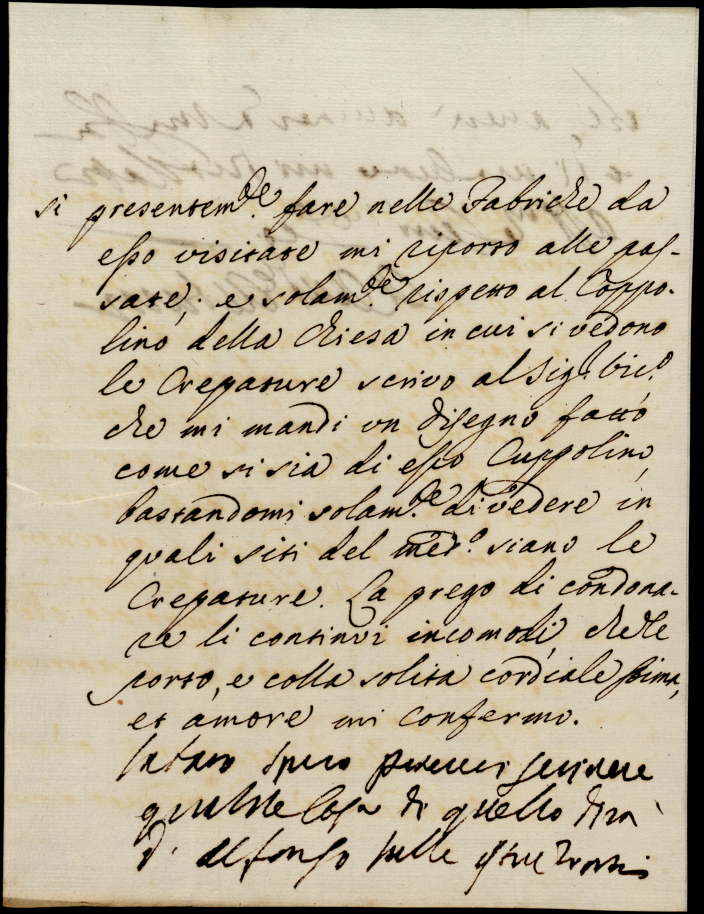 si presentem.te fare nelle Fabriche da
esso visitate mi riporto alle pas-
sate; e solam.te rispetto al Coppo-
lino della Chiesa in cui si vedono
le Crepature scrivo al Sig.r Vic.o
che mi mandi un disegno fatto
come si sia di esso Cuppolino,
bastandomi solam.te di vedere in
quali siti del med.o siano le
Crepature. La prego di condona-
re li continui incomodi, che le
porto, e colla solita cordiale stima,
et amore mi confermo.
spero
qualche cosa di quello dirà
D. Alfonso sulle